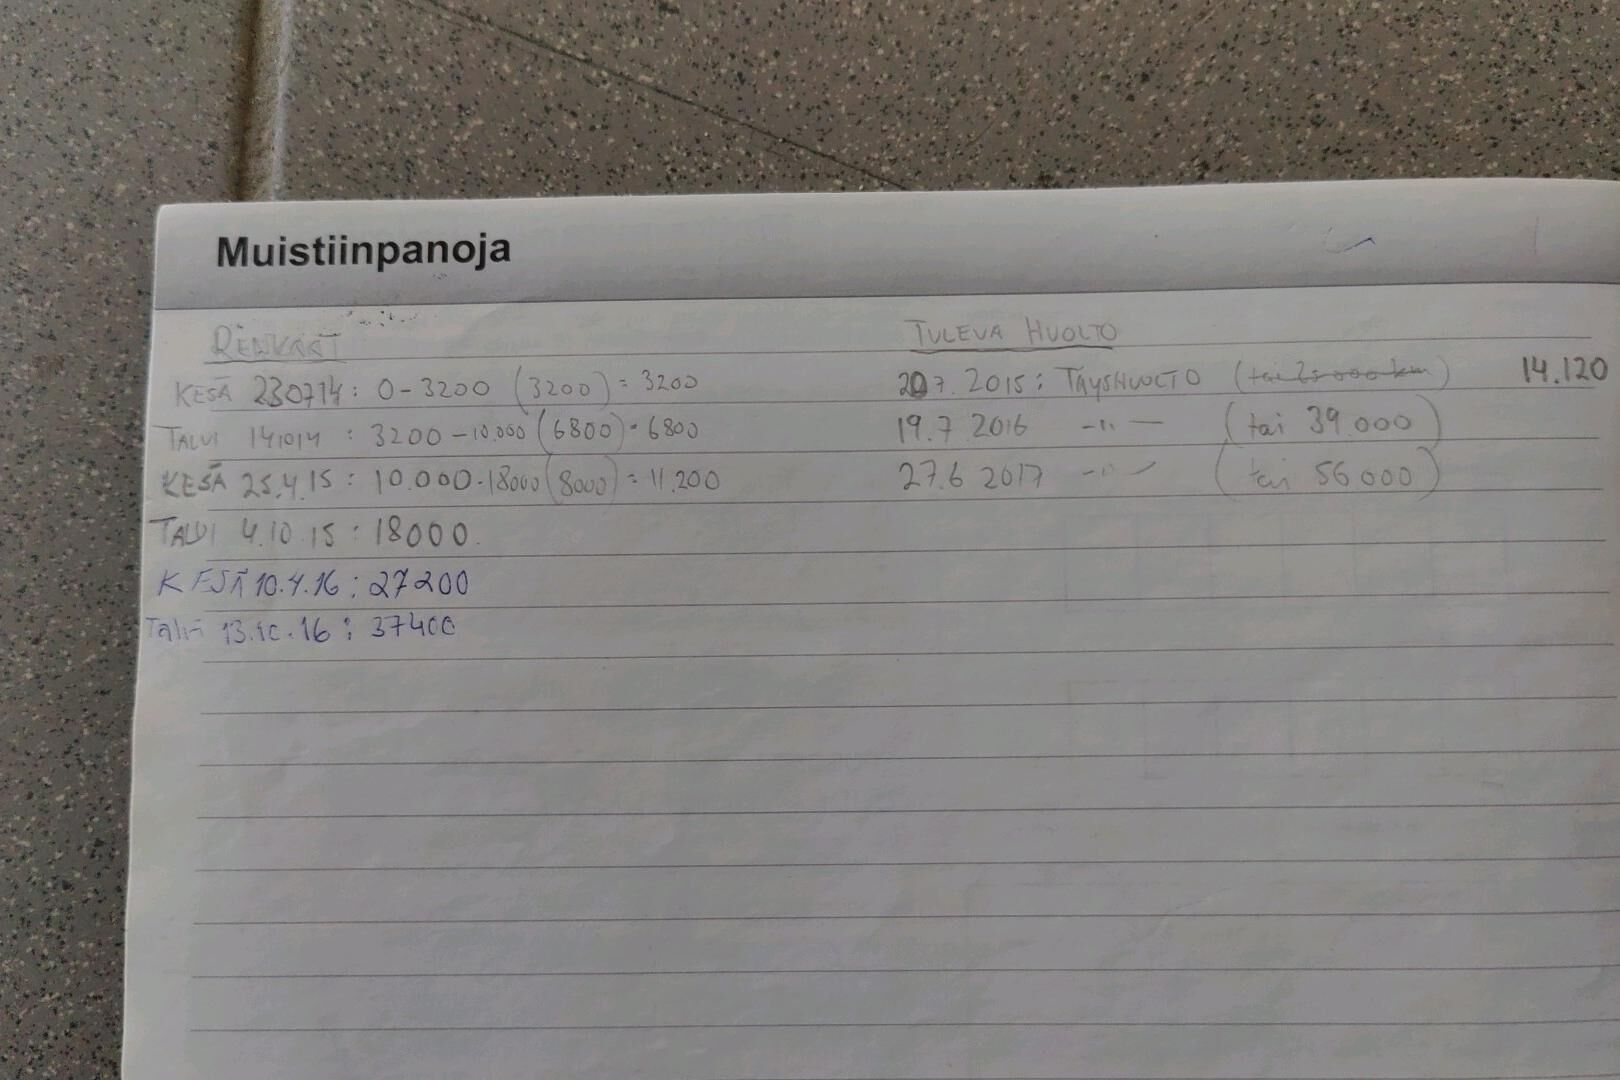 Muistiinpanoja
RENKAAT
KESÄ 230714: 0-3200 (3200) = 3200
TALVI 141014 : 3200-10.000 (6800) = 6800
KESÄ 25.4.15 : 10.000-18000 (8000) = 11.200
TALVI 4.10.15 : 18000.
KESÄ 10.4.16 : 27200
Talvi 13.10.16 : 37400
TULEVA HUOLTO
20.7.2015: TÄYSHUOLTO (tai 25000 km) 14.120
19.7 2016 -"- (tai 39.000)
27.6 2017 -"- (tai 56000)